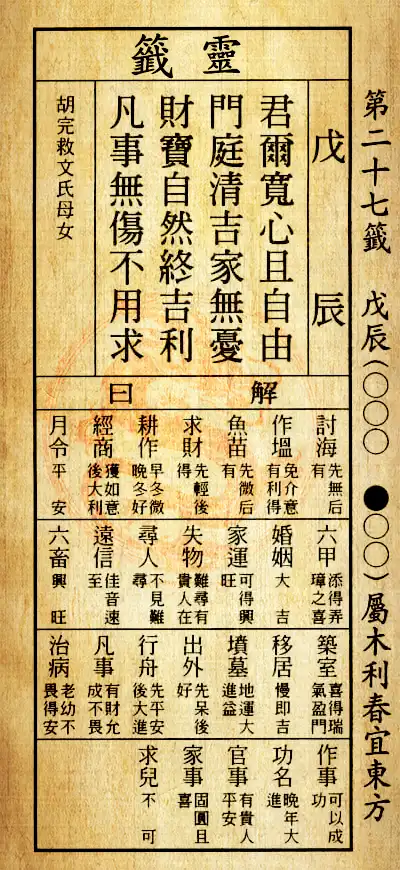 第二十七籤 戊辰(○○○ ●○○)屬木利春宜東方
靈籤
戊辰
君爾寬心且自由
門庭清吉家無憂
財寶自然終吉利
凡事無傷不用求
胡完救文氏母女
解曰
討海 先無后
有
作塭 免介意
有利得
魚苗 先微后
有
求財 先輕後
得
耕作 早冬微
晚冬好
經商 獲如意
後大利
月令 平安
六甲 添得弄
璋之喜
婚姻 大吉
家運 可得興
旺
失物 難尋有
貴人在
尋人 不見難
尋
遠信 佳音速
至
六畜 興旺
築室 喜得瑞
氣盈門
移居 慢即吉
墳墓 地運大
進益
出外 先呆後
好
行舟 先平安
後大進
凡事 有財允
成不畏
治病 老幼不
畏得安
作事 可以成
功
功名 晚年大
進
官事 有貴人
平安
家事 固圓且
喜
求兒 不可